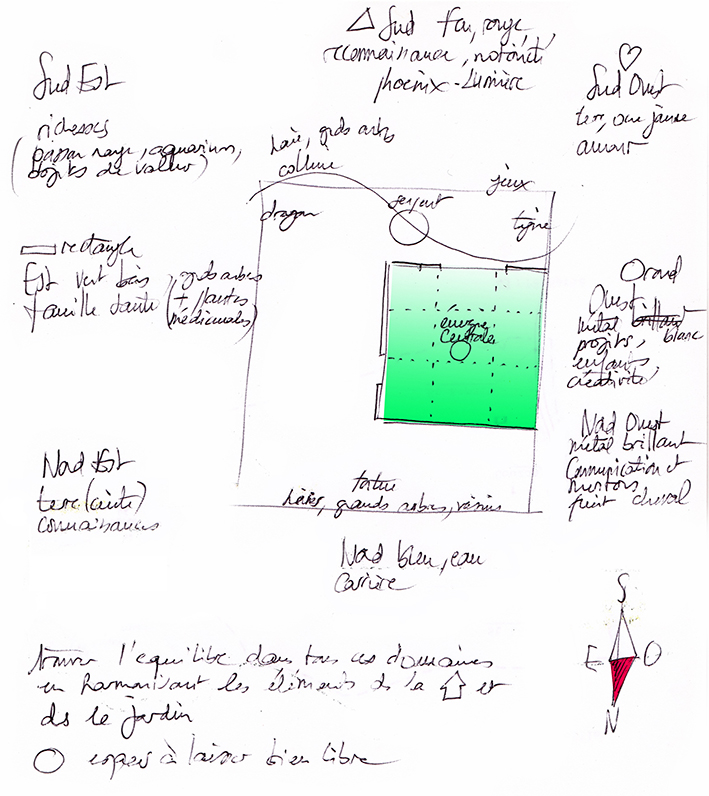 Sud feu, rouge,
reconnaissance, notoriété
phoenix-Lumière
Sud Est
richesses
(poisson rouge, aquarium,
objets de valeur)
haie, grds arbres
colline
Sud Ouest
terre, ocre jaune
amour
jeux
dragon
serpent
tigre
rectangle
Est vert bois
famille santé
(grds arbres
+ plantes
médicinales)
énergie
centrale
Ouest
métal brillant blanc
projets,
enfants,
créativité,
Nord Ouest
métal brillant
Communication et
mentors
cheval
Nord Est
terre
connaissances
tortue
haies, grands arbres, voisins
Nord bleu, eau
Carrière
S
E O
N
trouver l'équilibre dans tous ces domaines
en harmonisant les éléments ds la et
ds le jardin
espaces à laisser bien libre